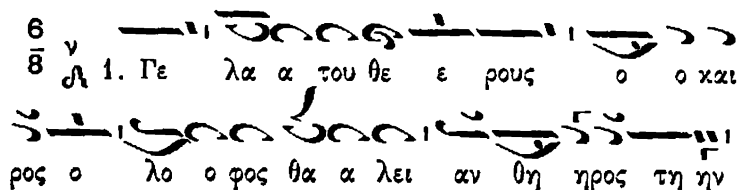 6/8 ν 1. Γε λα α του θε ε ρους ο ο και
ρος ο λο ο φος θα α λει αν θη ηρος τη ην